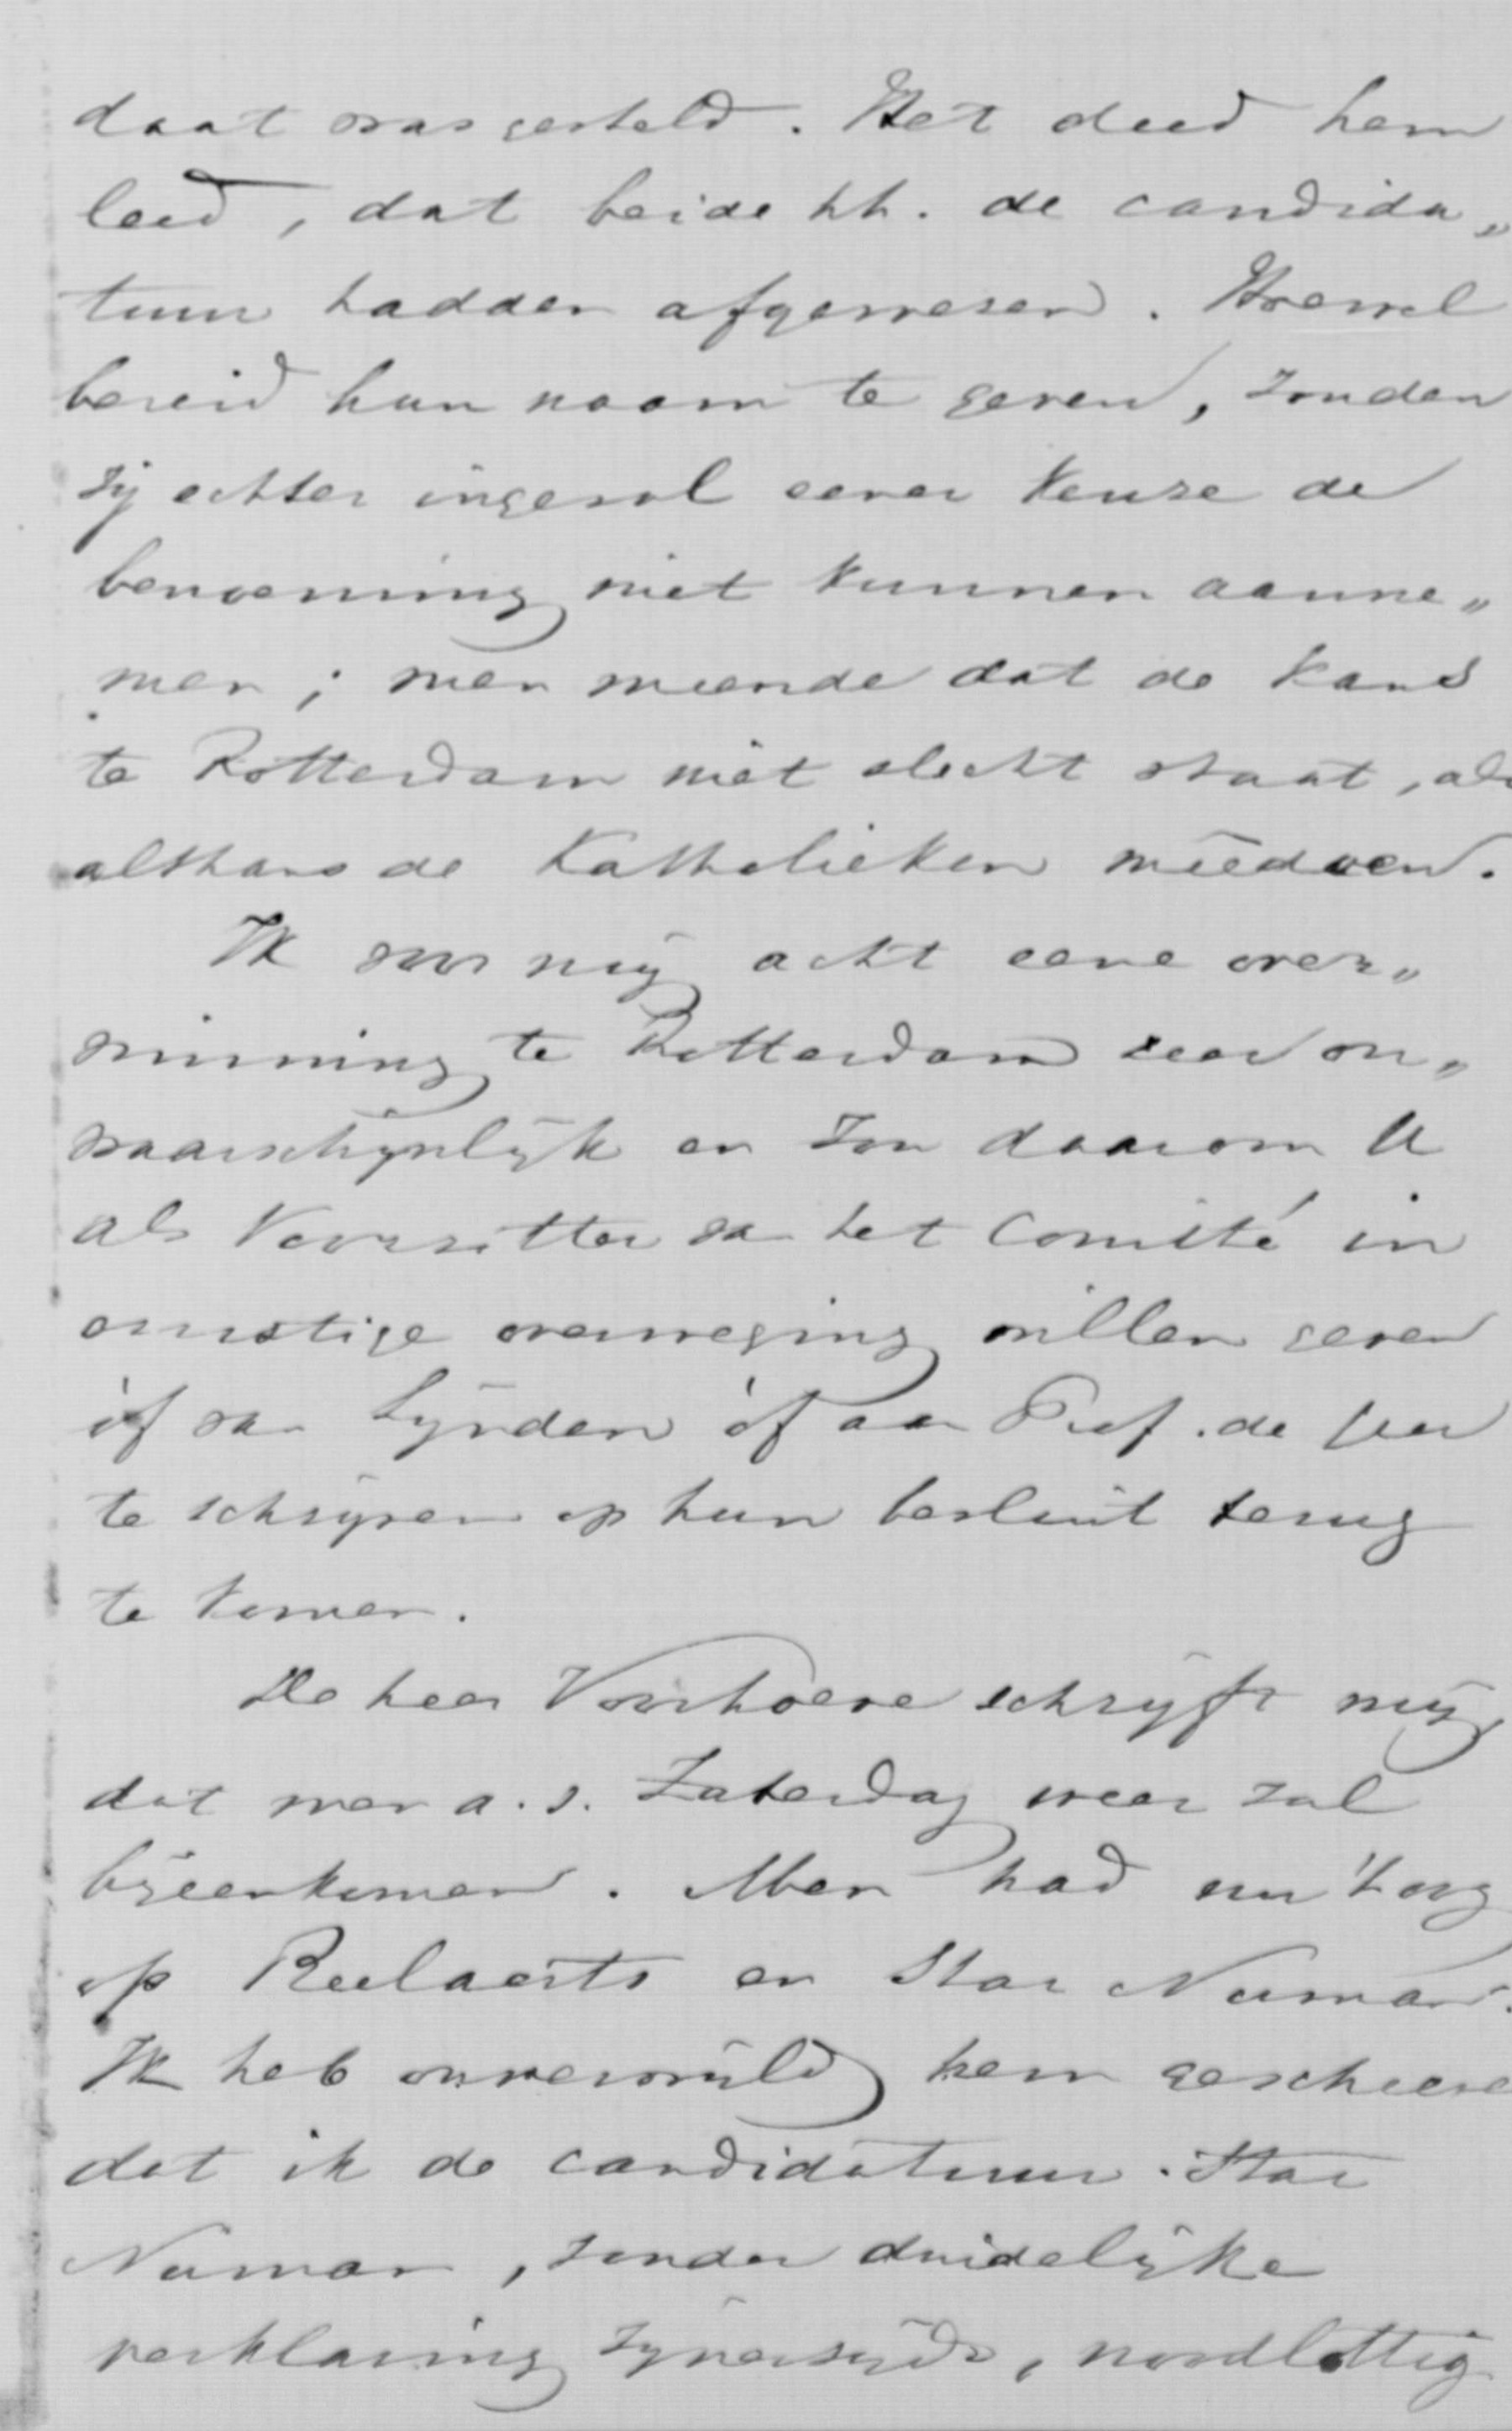 daat was gesteld. Het deed hem
leed, dat beide hh. de candida„
tuur hadden afgewezen. Hoewel
bereid hun naam te geven, zouden
zij echter ingeval eener keuze de
benoeming niet kunnen aanne„
men; men meende dat de kans
te Rotterdam niet slecht staat, als
althans de Katholieken meêdoen.
Ik voor mij acht eene over„
winning te Rotterdam zeer on„
waarschijnlijk en zou daarom U
als Voorzitter van het Comité in
ernstige overweging willen geven
òf van Lynden òf aan Prof. de Geer
te schrijven op hun besluit terug
te komen.
De heer Voorhoeve schrijft mij,
dat men a.s. Zaterdag weer zal
bijeenkomen. Men had nu 't oog
op Beelaerts en Star Numan.
Ik heb onverwijld hem geschreven
dat ik de candidatuur Star
Numan, zonder duidelijke
verklaring zijnerzijds, noodlottig